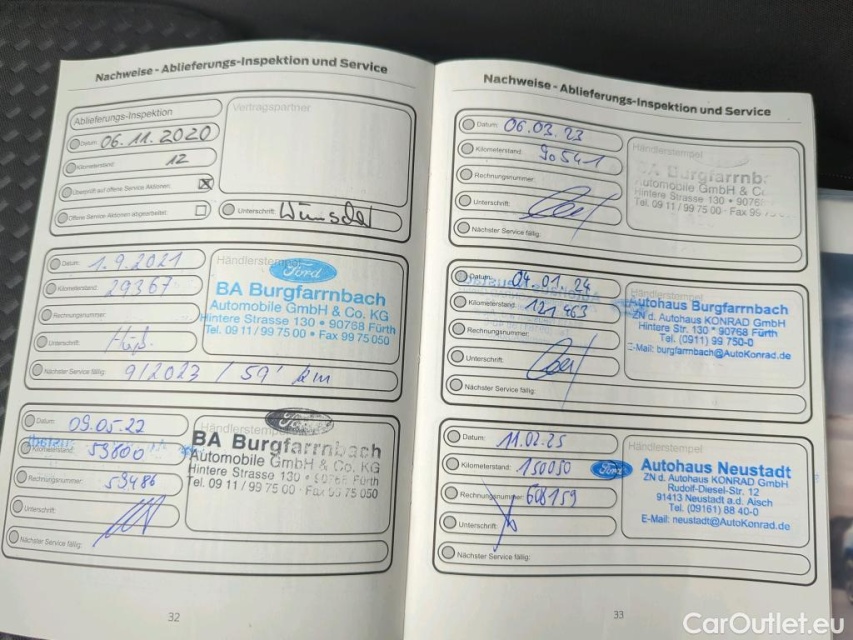 Nachweise - Ablieferungs-Inspektion und Service
Ablieferungs-Inspektion
Datum: 06.11.2020
Kilometerstand: 12
Überprüft auf offene Service-Aktionen:
Offene Service-Aktionen abgearbeitet:
Vertragspartner
Unterschrift:
Datum: 1.9.2021
Kilometerstand: 29367
Rechnungsnummer:
Unterschrift:
Nächster Service fällig: 9/2023 / 59' km
Händlerstempel
Ford
BA Burgfarrnbach
Automobile GmbH & Co. KG
Hintere Strasse 130 • 90768 Fürth
Tel. 09 11 / 99 75 00 • Fax 99 75 050
Datum: 09.05.22
Kilometerstand: 59800
Rechnungsnummer: 59486
Unterschrift:
Nächster Service fällig:
Händlerstempel
Ford
BA Burgfarrnbach
Automobile GmbH & Co. KG
Hintere Strasse 130 • 90768 Fürth
Tel. 09 11 / 99 75 00 · Fax 99 75 050
32
Nachweise - Ablieferungs-Inspektion und Service
Datum: 06.03.23
Kilometerstand: 90541
Rechnungsnummer:
Unterschrift:
Nächster Service fällig:
Händlerstempel
BA Burgfarrnb
Automobile GmbH & Co.
Hintere Strasse 130 • 9076
Tel. 09 11 / 99 75 00 · Fax 99
Datum: 04.01.24
Kilometerstand: 121463
Rechnungsnummer:
Unterschrift:
Nächster Service fällig:
Autohaus Burgfarrnbach
ZN d. Autohaus KONRAD GmbH
Hintere Str. 130 * 90768 Fürth
Tel. (0911) 99 750-0
E-Mail: burgfarrnbach@AutoKonrad.de
Datum: 11.02.25
Kilometerstand: 150050
Rechnungsnummer: 608159
Unterschrift:
Nächster Service fällig:
Händlerstempel
Ford
Autohaus Neustadt
ZN d. Autohaus KONRAD GmbH
Rudolf-Diesel-Str. 12
91413 Neustadt a.d. Aisch
Tel. (09161) 88 40-0
E-Mail: neustadt@AutoKonrad.de
33
CarOutlet.eu